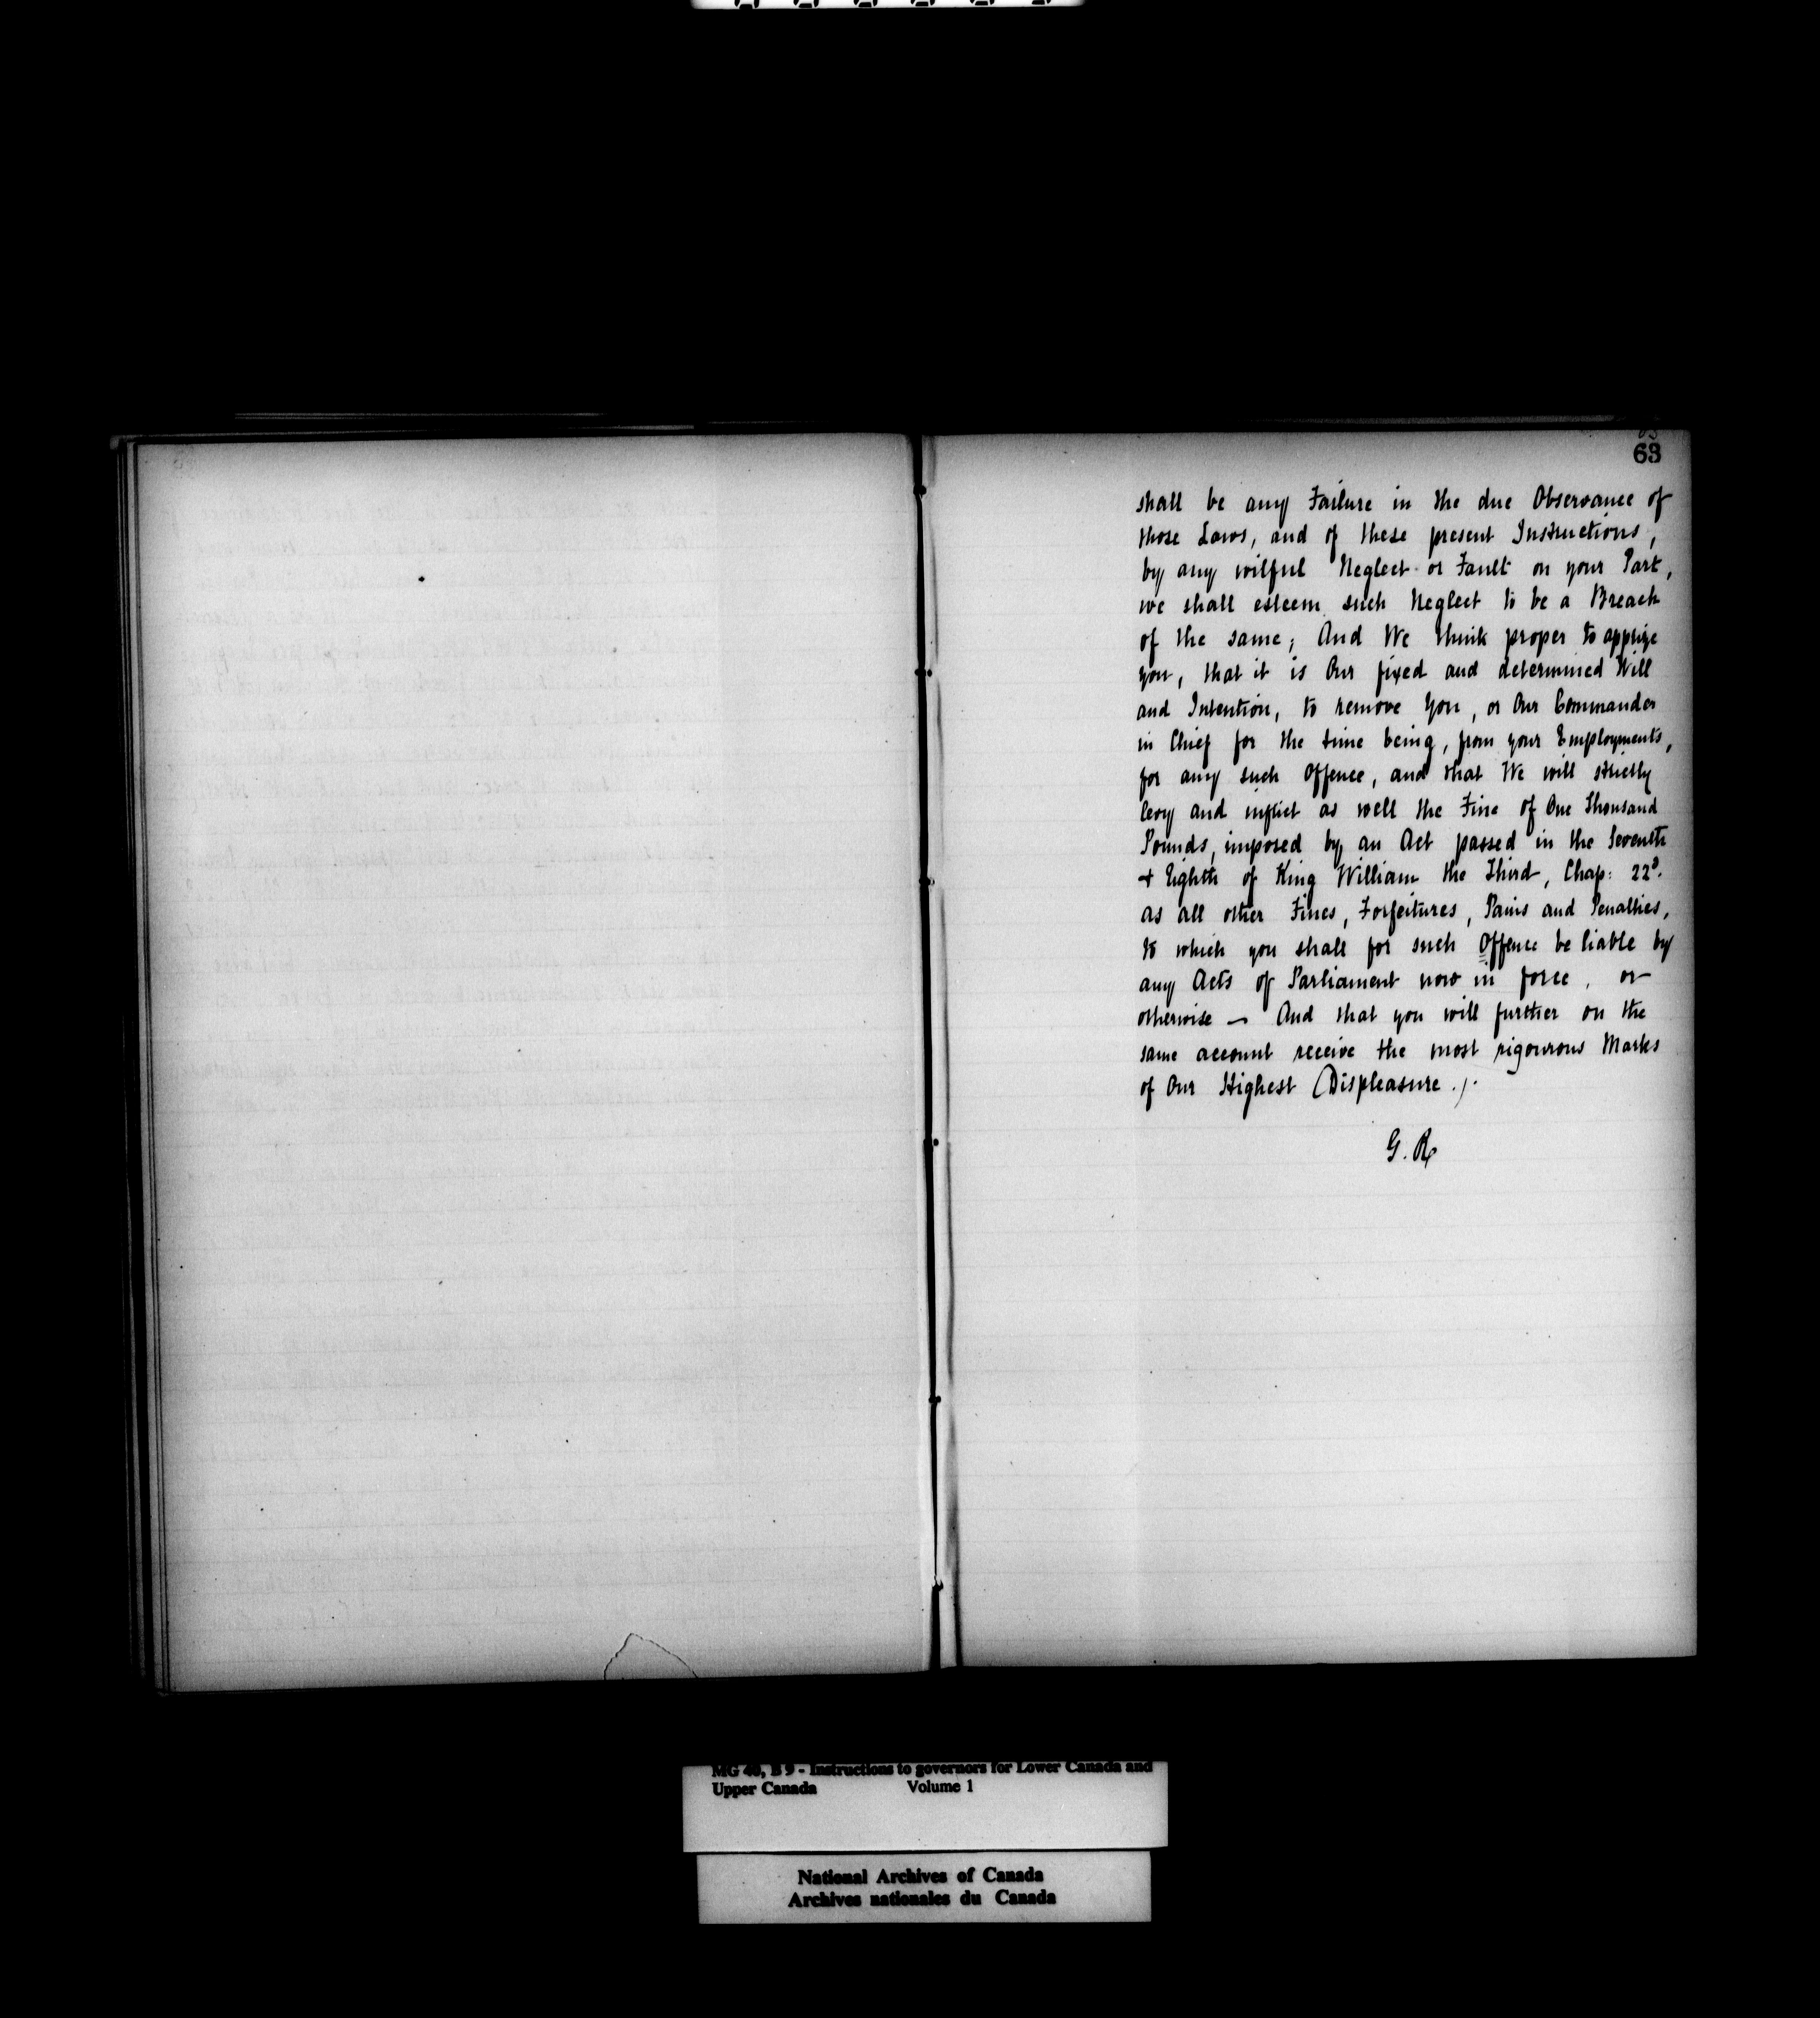 63
shall be any Failure in the due Observance of
those Laws, and of these present Instructions,
by any wilful Neglect or Fault on your Part,
we shall esteem such Neglect to be a Breach
of the same; And We think proper to apprize
you, that it is Our fixed and determined Will
and Intention, to remove You, or Our Commander
in Chief for the time being, from your Employments,
for any such Offence, and that We will strictly
levy and inflict as well the Fine of One Thousand
Pounds, imposed by an Act passed in the Seventh
+ Eighth of King William the Third, Chap: 22d.
as all other Fines, Forfeitures, Pains and Penalties,
to which you shall for such Offence be liable by
any Acts of Parliament now in force, or
otherwise — And that you will further on the
same account receive the most rigourous Marks
of Our Highest Displeasure ./.
G. R
MG 40, B 9 - Instructions to governors for Lower Canada and
Upper Canada Volume 1
National Archives of Canada
Archives nationales du Canada